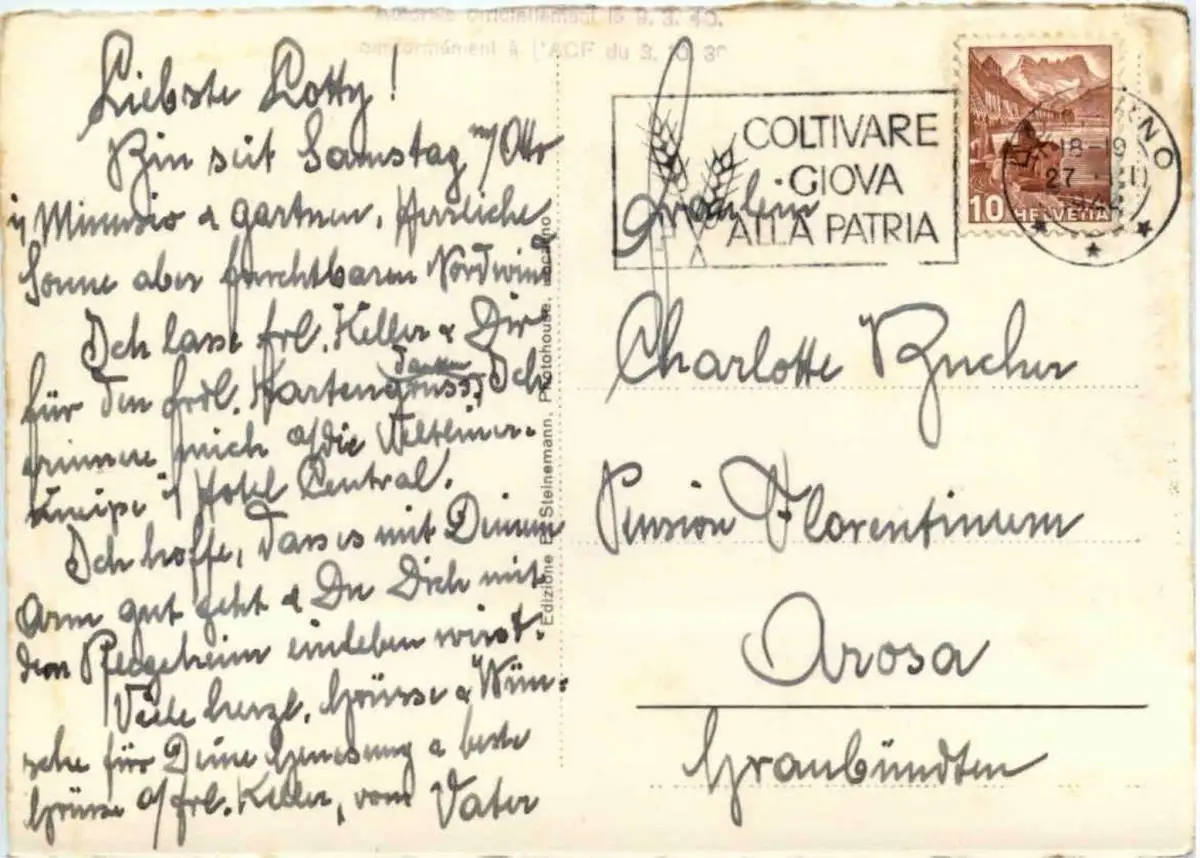 autorisé officiellement le 9. 3. 40.
conformément à l'ACF du 3. 10. 39
Liebste Lotty!
Bin seit Samstag m/ Otto
i/ Minusio a gartnen. Herrliche
Sonne aber furchtbaren Nordwind
Ich lasse frl. Keller & Dir
für den frdl. Kartengruss danken, Ich
erinnere mich a/ die Veltliner-
kneipe i/ Hotel Central.
Ich hoffe, dass es mit Deinem
Arm gut geht & Du Dich mit
dem Pflegeheim einleben wirst.
Viele herzl. Grüsse & Wün-
sche für Deine Genesung & beste
Grüsse a/ frl. Keller, vom Vater
Edizione E. Steinemann, Photohouse, Locarno
COLTIVARE
GIOVA
ALLA PATRIA
18-19
27
10 HELVETIA
Fräulein
Charlotte Bucher
Pension Florentinum
Arosa
Graubündten